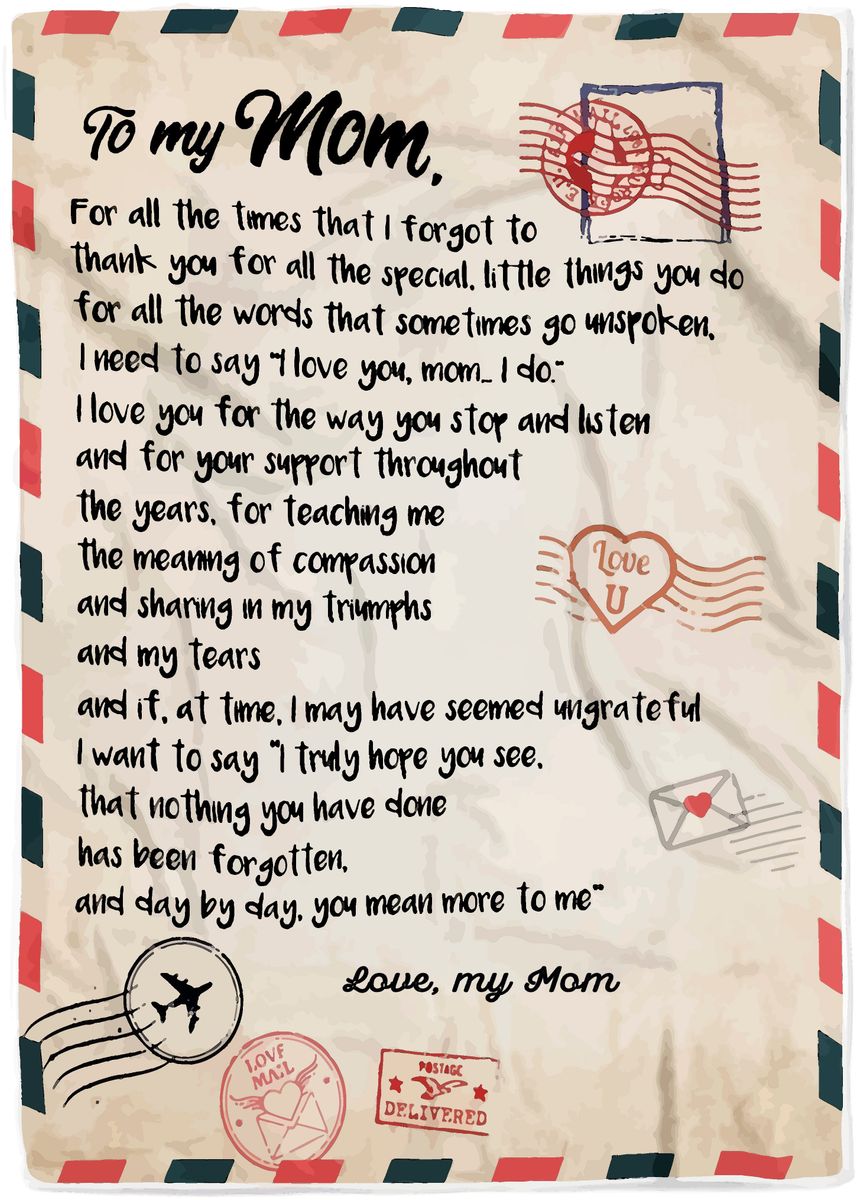 To my Mom,
For all the times that I forgot to
thank you for all the special, little things you do
for all the words that sometimes go unspoken,
I need to say "I love you, mom... I do."
I love you for the way you stop and listen
and for your support throughout
the years, for teaching me
the meaning of compassion
and sharing in my triumphs
and my tears
and if, at time, I may have seemed ungrateful
I want to say "I truly hope you see,
that nothing you have done
has been forgotten,
and day by day, you mean more to me"
Love, my Mom
Love
U
LOVE
MAIL
POSTAGE
DELIVERED